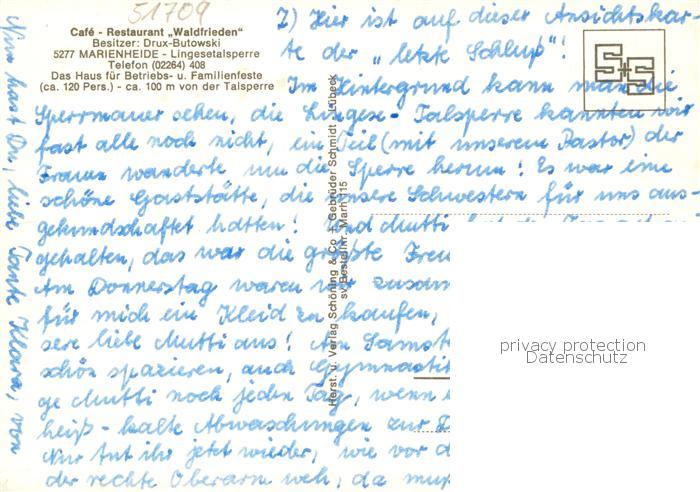 51709
Café - Restaurant „Waldfrieden“
Besitzer: Drux-Butowski
5277 MARIENHEIDE - Lingesetalsperre
Telefon (02264) 408
Das Haus für Betriebs- u. Familienfeste
(ca. 120 Pers.) - ca. 100 m von der Talsperre
2) Hier ist auf dieser Ansichtskar-
te der „letzte Schlup“!
Im Hintergrund kann man die
Sperrmauer sehen, die Lingese-Talsperre kannten wir
fast alle noch nicht, ein Teil (mit unserem Pastor) der
Frauen wanderte um die Sperre herum! Es war eine
schöne Gaststätte, die unsere Schwestern für uns aus-
gekundschaftet hatten! Und Mutti
gehalten, das war die größte Freu
Am Donnerstag waren wir zusam
für mich ein Kleid zu kaufen,
sere liebe Mutti aus! Am Samst
schön spazieren, auch Gymnastik
ge Mutti noch jeden Tag, wenn
heiß-kalte Abwaschungen zur
Nur tut ihr jetzt wieder, wie vor d
der rechte Oberarm weh, da mu
Nun hast Du, liebe Tante Klara, von
Herst. u. Verlag Schöning & Co + Gebrüder Schmidt, Lübeck
sv Bestellnr. Marh 115
S+S
privacy protection
Datenschutz